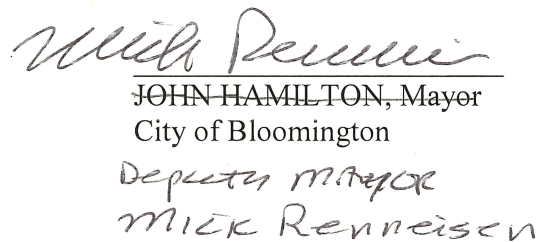 Mick Renneisen
JOHN HAMILTON, Mayor
City of Bloomington
Deputy MAYOR
MICK Renneisen